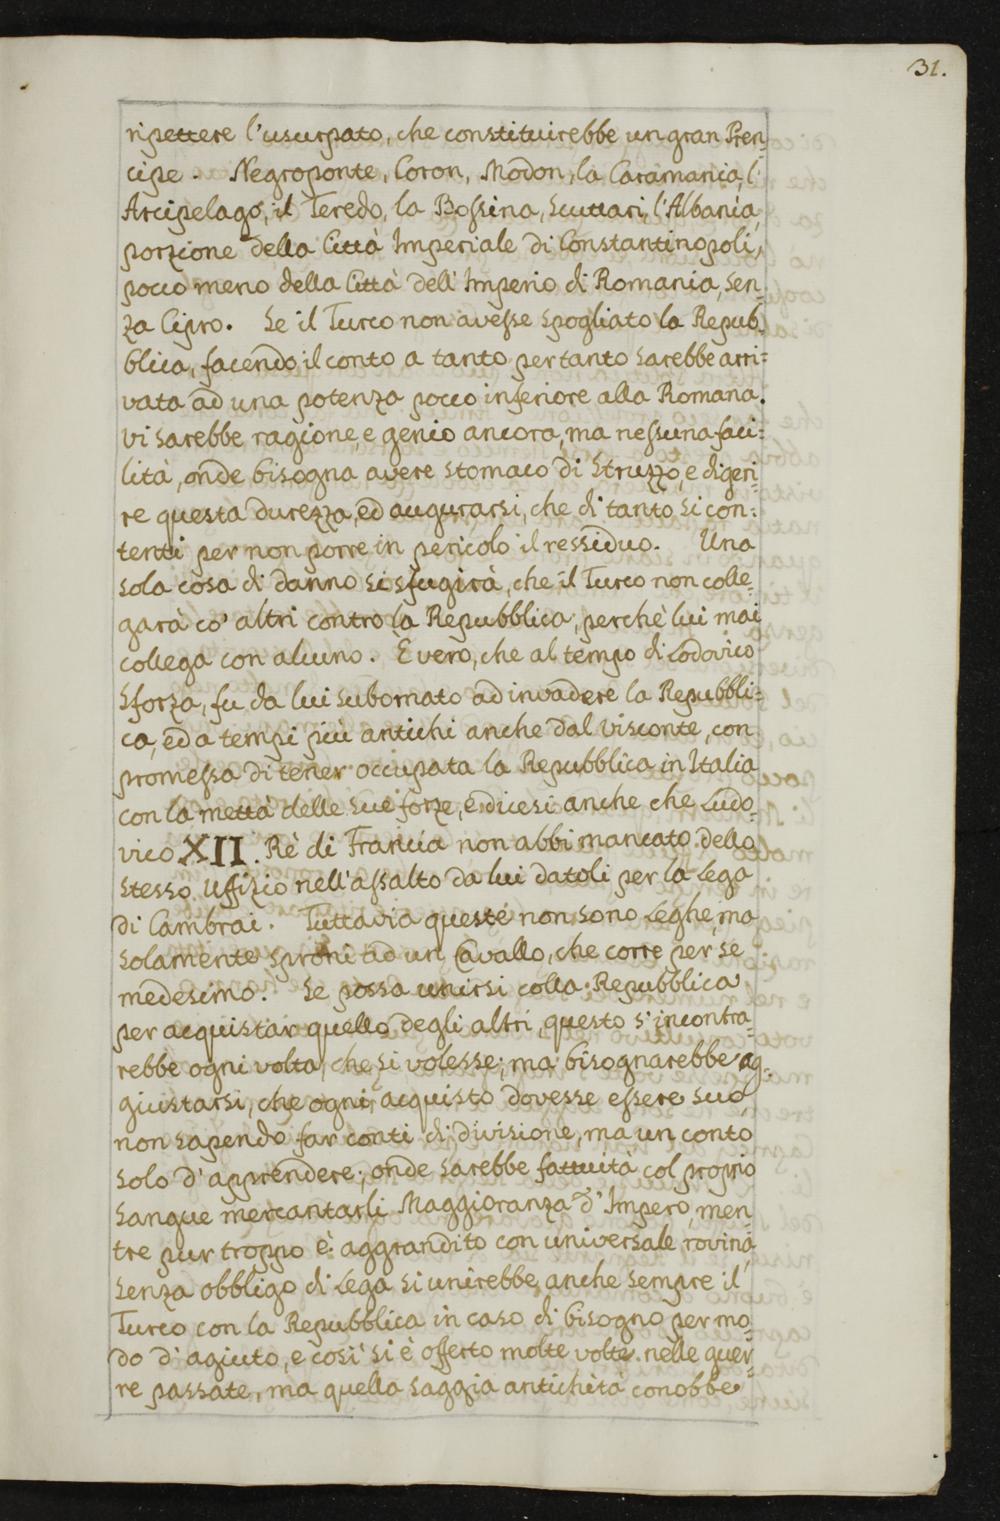 31.
ripettere l'usurpato, che constituirebbe un gran Pren-
cipe. Negroponte, Coron, Modon, la Caramania, l'
Arcipelago, il Teredo, la Bossina, Scuttari, l'Albania,
porzione della Città Imperiale di Constantinopoli,
pocco meno della Città dell'Imperio di Romania, sen-
za Cipro. Se il Turco non avesse spogliato la Repub-
blica, facendo il conto a tanto per tanto sarebbe arri=
vata ad una potenza pocco inferiore alla Romana.
Vi sarebbe ragione, e genio ancora, ma nessuna faci=
lità, onde bisogna avere stomaco di Struzzo, e digeri-
re questa durezza, ed augurarsi, che di tanto si con=
tenti per non porre in pericolo il ressiduo. Una
sola cosa di danno si sfugirà, che il Turco non colle-
garà co' altri contro la Repubblica, perchè lui mai
collega con alcuno. È vero, che al tempo di Lodovico
Sforza, fu da lui subornato ad invadere la Repubbli=
ca, ed a tempi più antichi anche dal Visconte, con
promessa di tener occupata la Repubblica in Italia
con la mettà delle sue forze, e dicesi anche che Ludo-
vico XII. Rè di Francia non abbi mancato dello
stesso Uffizio nell'assalto da lui datoli per la Lega
di Cambrai. Tuttavia queste non sono Leghe, ma
solamente sproni ad un Cavallo, che corre per se
medesimo. Se possa unirsi colla Repubblica
per acquistar quello degli altri, questo s'incontra-
rebbe ogni volta, che si volesse; ma bisognarebbe ag-
giustarsi, che ogni acquisto dovesse essere suo,
non sapendo far conti di divisione, ma un conto
solo d'apprendere; onde sarebbe fattuità col proprio
sangue mercantarli Maggioranza d'Impero, men-
tre pur troppo è aggrandito con universale rovina,
senza obbligo di Lega si unirebbe anche sempre il
Turco con la Repubblica in caso di bisogno per mo-
do d'agiuto, e così si è offerto molte volte nelle guer-
re passate, ma quella saggia antichità conobbe